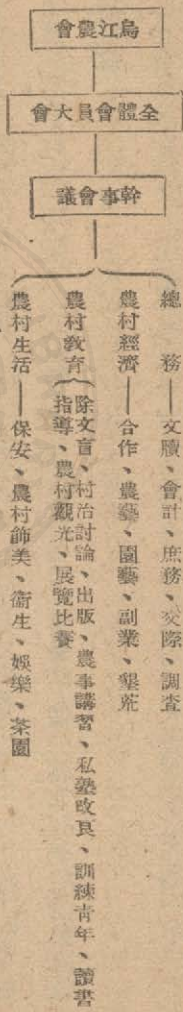 烏江農會
全體會員大會
幹事會議
總務——文牘、會計、庶務、交際、調查
農村經濟——合作、農藝、園藝、副業、墾荒
農村教育{除文盲、村治討論、出版、農事講習、私塾改良、訓練青年、讀書
指導、農村觀光、展覽比賽
農村生活——保安、農村飾美、衞生、娛樂、茶園